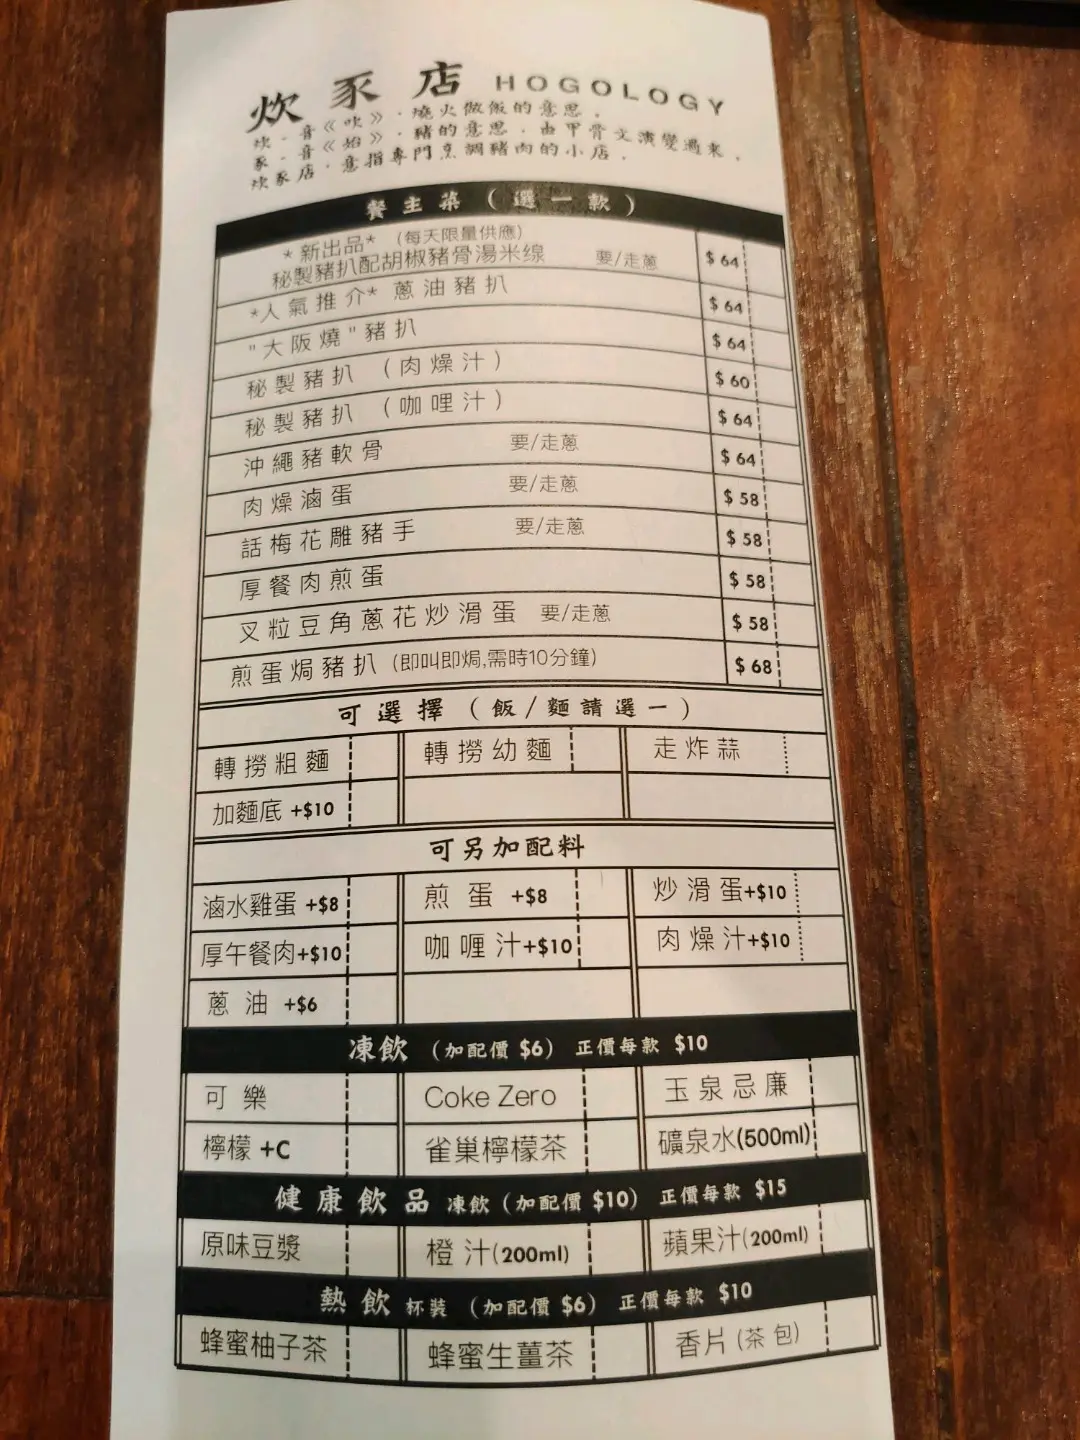 炊豕店 HOGOLOGY
炊．音《吹》．燒火做飯的意思．
豕．音《始》．豬的意思．由甲骨文演變過來．
炊豕店．意指專門烹調豬肉的小店．
餐主菜（選一款）
*新出品* (每天限量供應)
秘製豬扒配胡椒豬骨湯米线 要/走蔥 $64
*人氣推介* 蔥油豬扒 $64
"大阪燒"豬扒 $64
秘製豬扒（肉燥汁） $60
秘製豬扒（咖哩汁） $64
沖繩豬軟骨 要/走蔥 $64
肉燥滷蛋 要/走蔥 $58
話梅花雕豬手 要/走蔥 $58
厚餐肉煎蛋 $58
叉粒豆角蔥花炒滑蛋 要/走蔥 $58
煎蛋焗豬扒 (即叫即焗,需時10分鐘) $68
可選擇（飯/麵請選一）
轉撈粗麵 轉撈幼麵 走炸蒜
加麵底 +$10
可另加配料
滷水雞蛋 +$8 煎蛋 +$8 炒滑蛋+$10
厚午餐肉+$10 咖喱汁+$10 肉燥汁+$10
蔥油 +$6
凍飲 (加配價 $6) 正價每款 $10
可樂 Coke Zero 玉泉忌廉
檸檬+C 雀巢檸檬茶 礦泉水(500ml)
健康飲品 凍飲(加配價 $10) 正價每款 $15
原味豆漿 橙汁(200ml) 蘋果汁(200ml)
熱飲 杯裝 (加配價 $6) 正價每款 $10
蜂蜜柚子茶 蜂蜜生薑茶 香片(茶包)